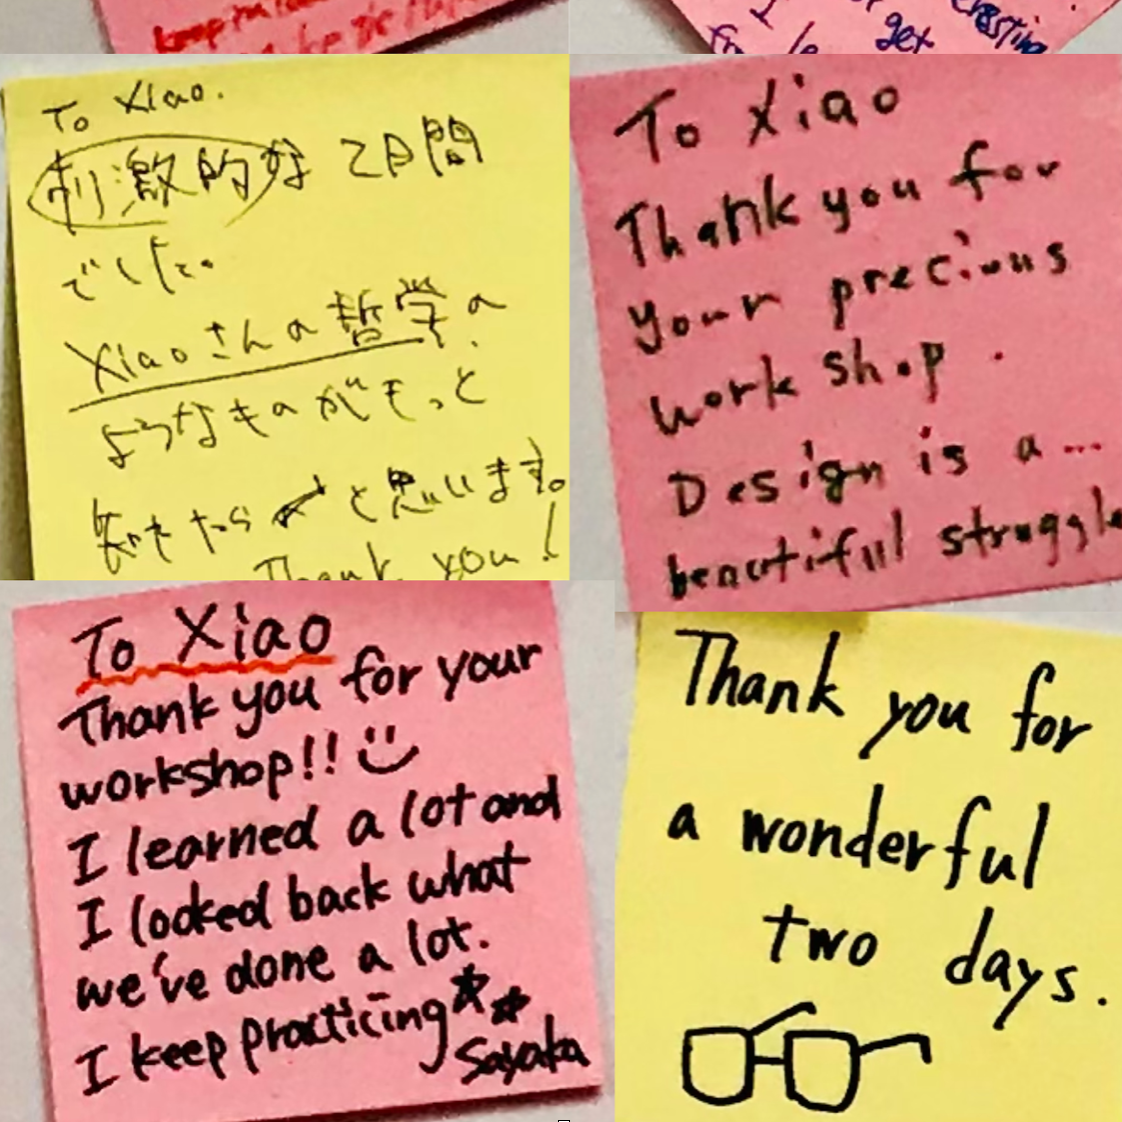 keep
get
To Xiao.
刺激的な 2日間
でした。
Xiaoさんの哲学の
ようなものがもっと
知れたら と思います。
Thank you!
To Xiao
Thank you for
your precious
work shop.
Design is a...
beautiful struggle
To Xiao
Thank you for your
workshop!!
I learned a lot and
I looked back what
we've done a lot.
I keep practicing
Sayaka
Thank you for
a wonderful
two days.